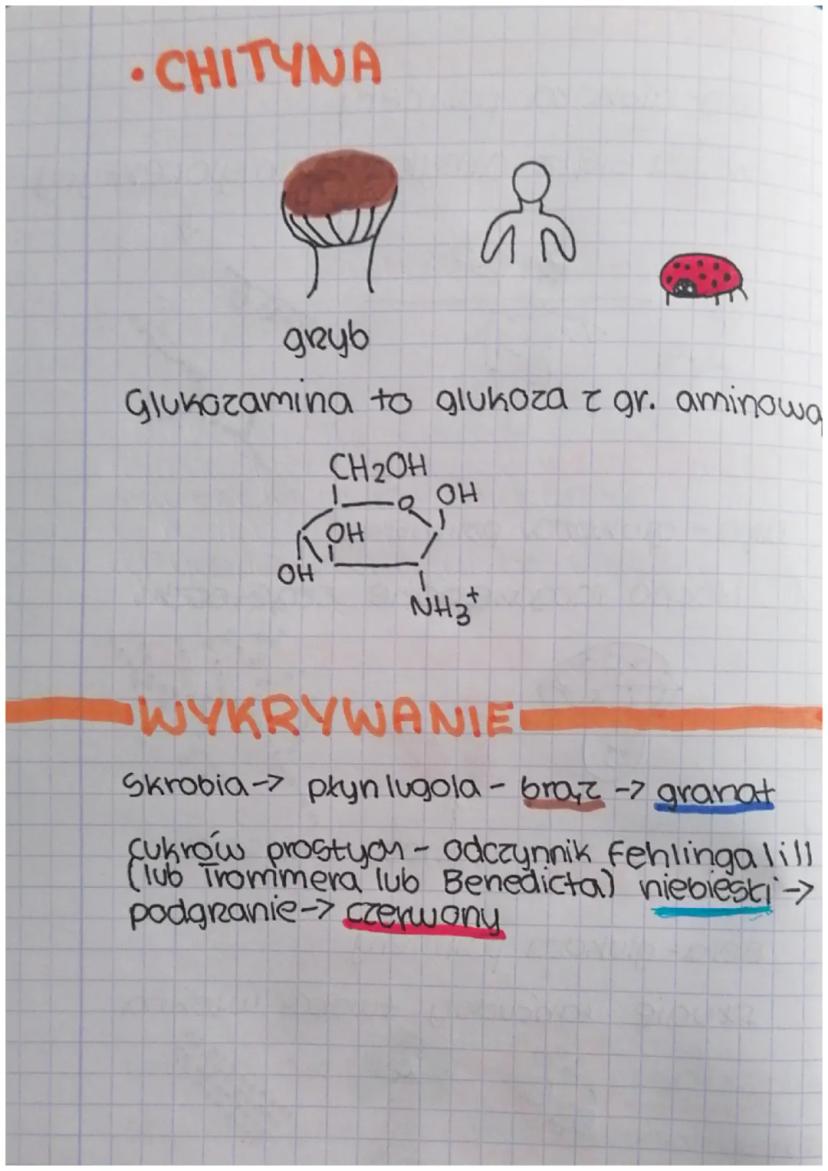 • CHITYNA
grzyb
Glukozamina to glukoza z gr. aminową
CH2OH
O OH
OH
OH
NH3+
WYKRYWANIE
Skrobia -> płyn lugola - brąz -> granat
cukrów prostych - odczynnik Fehlinga I i II
(lub Trommera lub Benedicta) niebieski ->
podgrzanie -> czerwony